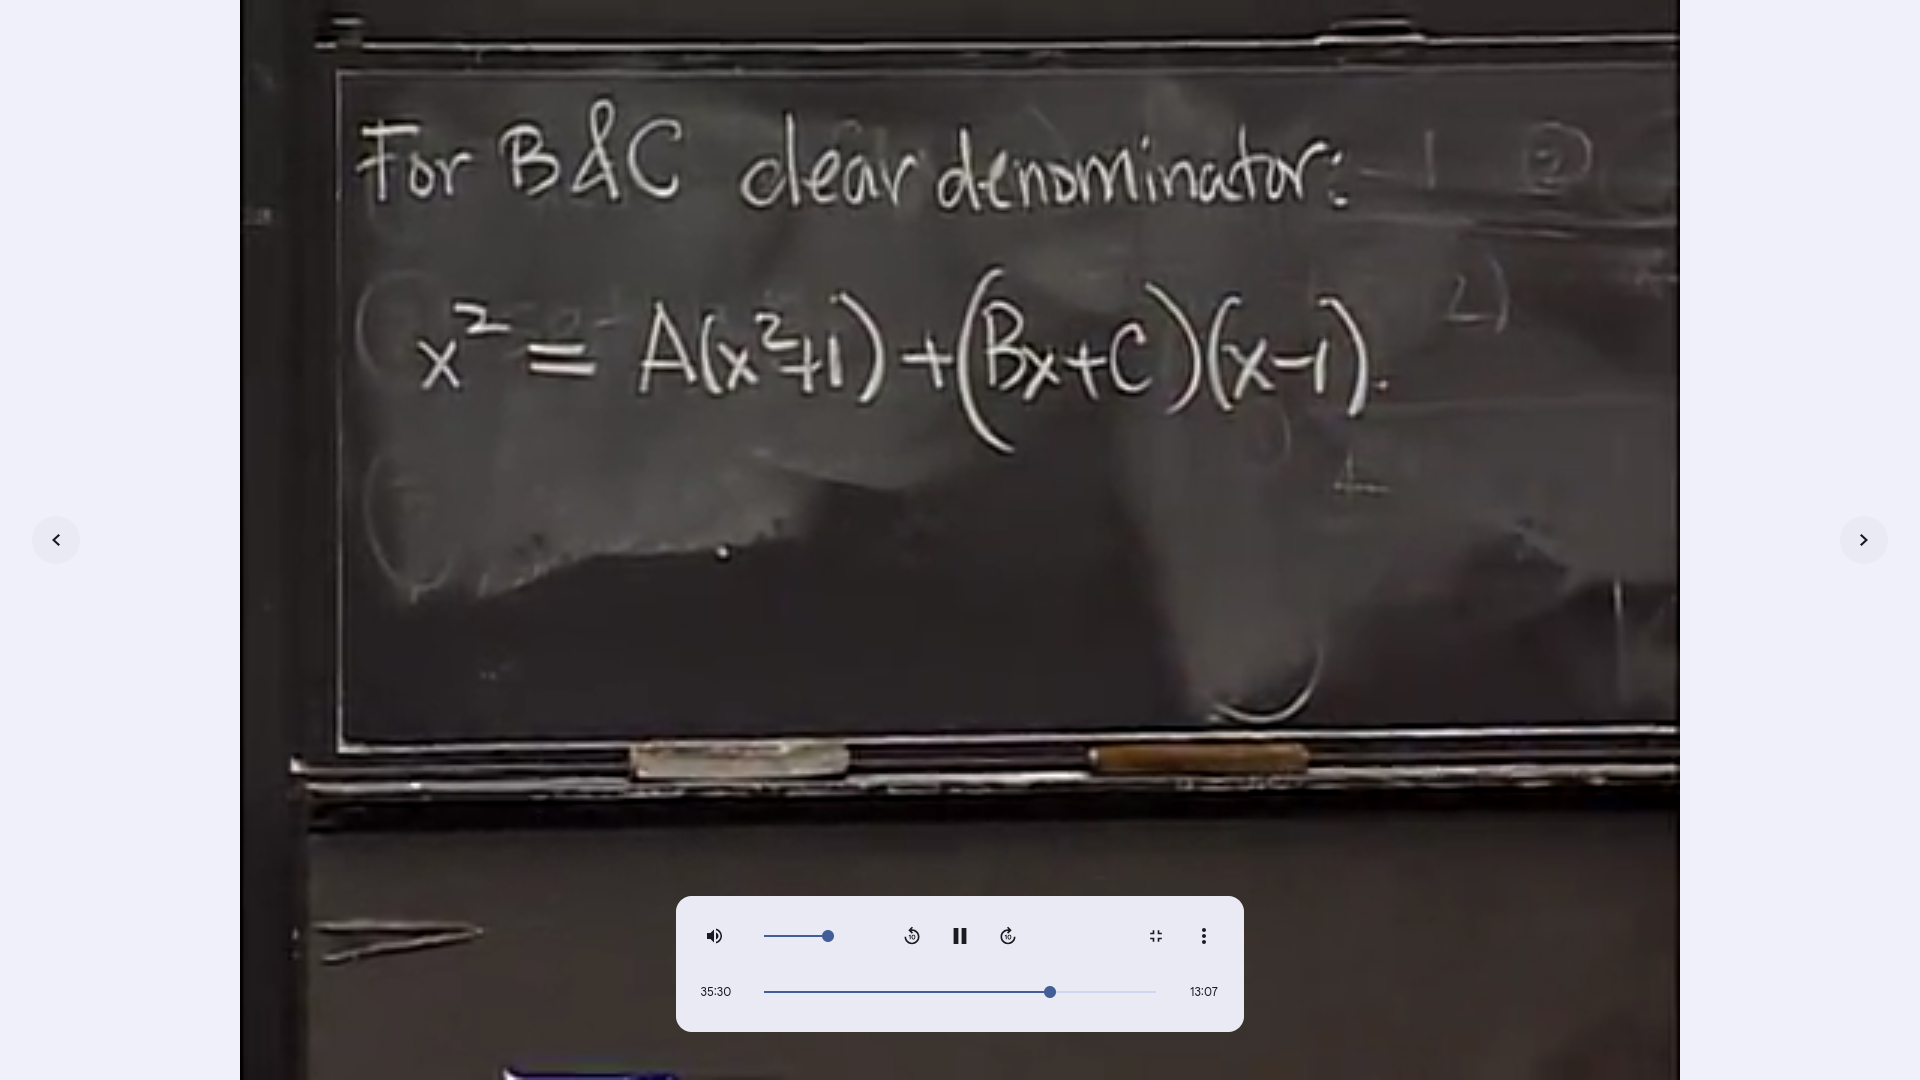 For B&C clear denominator:
x² = A(x²+1) + (Bx+C)(x-1).
35:30
13:07